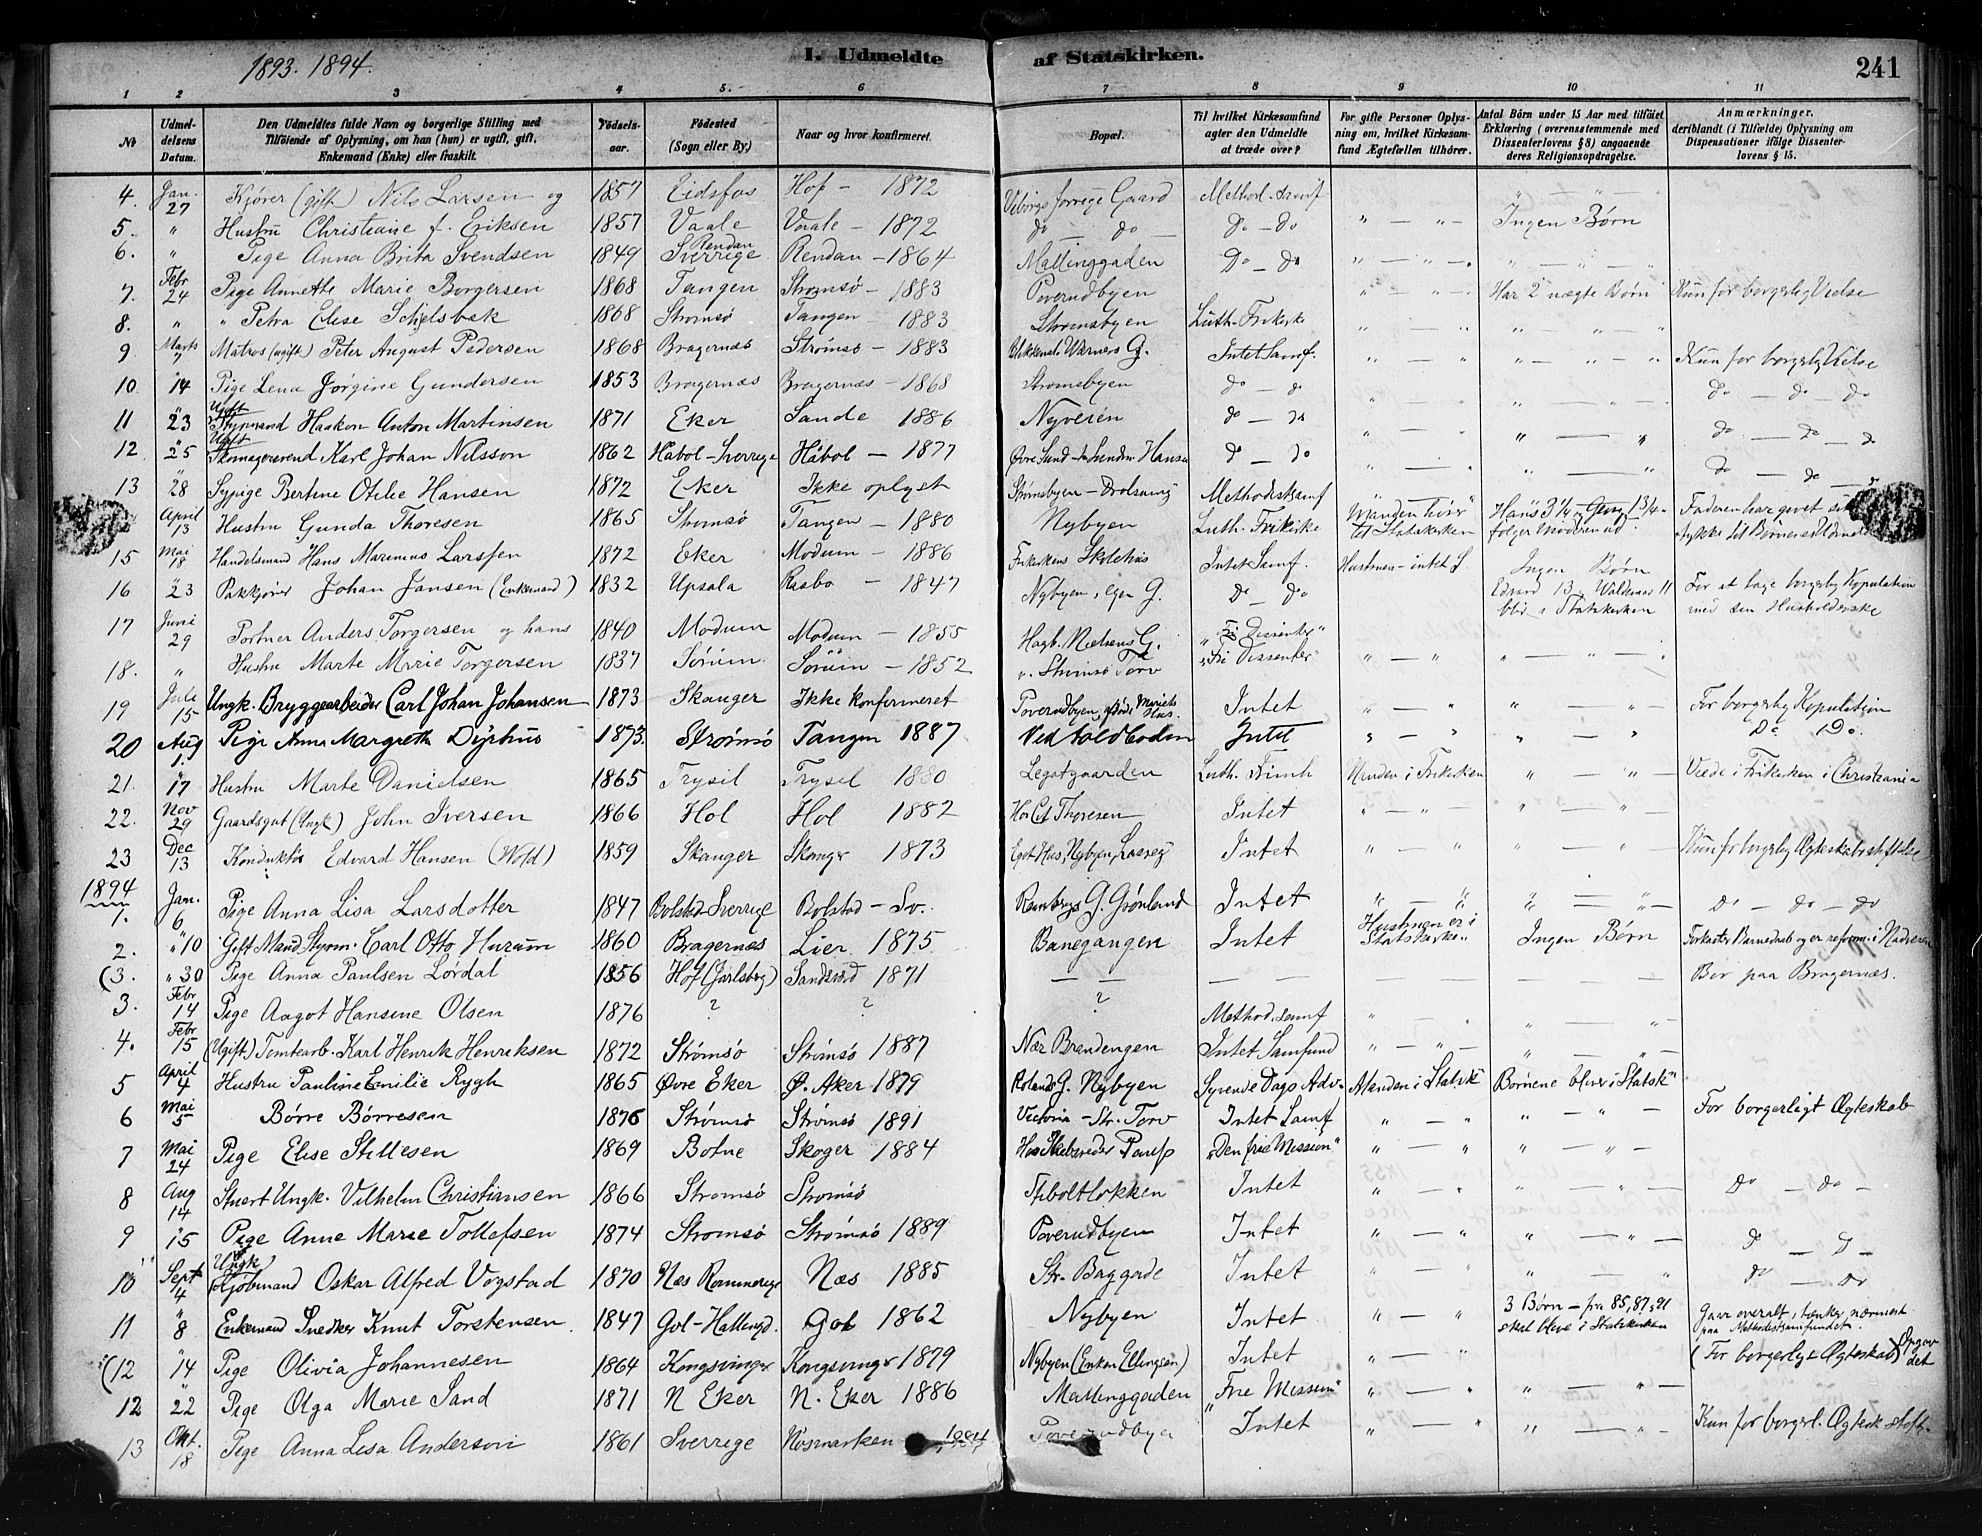 1893. 1894.
I. Udmeldte af Statskirken.
241
1 2 3 4 5. 6 7 8 9 10 11
No
Udmeldelsens Datum.
Den Udmeldtes fulde Navn og borgerlige Stilling med Tilföiende af Oplysning, om han (hun) er ugift, gift, Enkemand (Enke) eller fraskilt.
Födselsaar.
Födested (Sogn eller By.)
Naar og hvor konfirmeret.
Bopæl.
Til hvilket Kirkesamfund agter den Udmeldte at træde over?
For gifte Personer Oplysning om, hvilket Kirkesamfund Ægtefællen tilhörer.
Antal Börn under 15 Aar med tilföiet Erklæring (overensstemmende med Dissenterlovens § 8) angaaende deres Religionsopdragelse.
Anmærkninger, deriblandt (i Tilfælde) Oplysning om Dispensationer ifölge Dissenterlovens § 15.
4. Jan. 27 Kjører (gift) Nils Larsen og 1857 Eidsfos Hof - 1872 Viborgs forrige Gaard Method. Samf " — " —
5. " Hustru Christiane f. Eriksen 1857 Vaale Vaale - 1872 Do — do Do - Do " — " - Ingen Børn
6. " Pige Anna Brita Svendsen 1849 Rendan Sverrige Rendan - 1864 Mallinggaden Do - Do " — " - " — " —
7. Febr 24 Pige Annette Marie Borgersen 1868 Tangen Strømsø - 1883 Poverudbyen " — " - Har 2 uægte Børn Kun for borgerlig Vielse
8. " " Petra Elise Schjelsbek 1868 Strømsø Tangen - 1883 Strømsbyen Luth. Frikirke " — " " — "
9 Marts 7 Matros (ugift) Peter August Pedersen 1868 Bragernæs Strømsø - 1883 Blikkensl. Warners G. Intet Samf. " — " " — " Kun for borgerlig Vielse
10. " 14 Pige Lena Jørgine Gundersen 1853 Bragernæs Bragernæs - 1868 Strømsbyen do - d " — " " — " do - do - do
11 " 23 Ugift Styrmand Haakon Anton Martinsen 1871 Eker Sande 1886 Nyveien do - do " — " " — " do - do - do
12 " 25 Ugift Skomagersvend Karl Johan Nilsson 1862 Håbol - Sverrige Håbol - 1877 Øvre Sund - Hansen d - do " — " " — " do - do - d
13 " 28 Sypige Bertine Otilie Hansen 1872 Eker Ikke oplyst Strømsbyen - Methodistsamf
April 13 Hustru Gunda Thoresen 1865 Strømsø Tangen - 1880 Nybyen Luth. Frikirke Manden hører til Statskirken Hans 3 1/4 - Georg 1 3/4 - følger Moderen ud Faderen har givet
15 Mai 18 Handelsmand Hans Marinius Larssen 1872 Eker Modum - 1886 Frikirkens Skolehus Intet Samf. Hustruen - intet S. Ingen Børn
16 " 23 Pakkjører Johan Jansen (Enkemand) 1832 Upsala Rasbo - 1847 Nybyen, egen G. Do - Do Edvard 13, Waldemar 11 bliv. i Statskirken For at tage borgerlig Kopulation med sin Husholderske
17 Juni 29 Portner Anders Torgersen og hans 1840 Modum Modum - 1855 Hagb. Nielsens G. "Fri Dissenter"
18. " Hustru Marte Marie Torgersen 1837 Sørum. Sørum - 1852 v. Strømsø Torv "Fri Dissenter" " — " " — "
19 Juli 15 Ungk. Bryggearbeider Carl Johan Johansen 1873 Skauger Ikke konfirmeret Poverudbyen, Hus. Intet " — " " — " For borgerlig Kopulation
20 Aug 1. Pige Anna Margrethe Dyrhus 1873. Strømsø Tangen 1887 Ved Toldboden Intet " — " " — " Do Do.
21. " 17 Hustru Marte Danielsen 1865 Trysil Trysil 1880 Legatgaarden Luth. Frimh Manden i Frikirken " — " Viede i Frikirken i Christiania
22. Nov 29 Gaardsgut (Ungk) John Iversen 1866 Hol Hol 1882 Hos Thoresen Intet " — " " — "
23 Dec 13 Konduktør Edvard Hansen (Wold) 1859 Skauger Skauger 1873 Eget Hus, Nybyen, Intet " — " " — " Kun for borgerlig Ægteskabsstiftelse
1894
1. Jan. 6 Pige Anna Lisa Larsdotter 1847 Bolstad - Sverrige Bolstad - Sv. G. Grønland Intet " — " " — " Do - do - do
2. " 10 Gift Mand Styrm. Carl Otto Hurum 1860 Bragernæs Lier 1875. Banegangen Intet Hustruen er i Statskirken Ingen Børn
(3. " 30 Pige Anna Paulsen Lørdal 1856 Hof (Jarlsberg) Sandsvæd 1871 — — — Bor paa Bragernæs.
3. Febr 14 Pige Aagot Hansine Olsen 1876 ? ? ? Method. samf " — " " — "
4. Febr 15 (Ugift) Tomtearb. Karl Henrik Henriksen 1872 Strømsø Strømsø 1887 Nær Brandengen Intet Samfund " — " " — "
5 April 4 Hustru Pauline Emilie Rygh 1865 Øvre Eker Ø. Aker 1879 G. Nybyen Syvende Dags Adv. Manden i Statsk" Børnene bliver i Statsk"
6 Mai 5 Børre Børresen 1876 Strømsø Strømsø 1891 Victoria - Str. Torv Intet Samf " — " " — " For borgerligt Ægteskab
7 Mai 24 Pige Elise Stillesen 1869 Botne Skoger 1884 Hos Skibsreder "Den frie Mission" " — " " — "
8 Aug 14 Stuert Ungk. Vilhelm Christiansen 1866 Strømsø Strømsø Thboltløkken Intet " — " " — " Do - do -
9 " 15 Pige Anne Marie Tollefsen 1874 Strømsø Strømsø 1889 Poverudbyen Intet " — " " — " d - D -
10 Sept 4 Ungk Kjøbmand Oskar Alfred Vogstad 1870 Næs Romerige Næs 1885 Str. Baggade Intet " — " " — " do - do
11 " 8 Enkemand Snedker Knut Torstensen 1847 Gol - Hallingd. Gol 1862 Nybyen Intet " — " 3 Børn - fra 85, 87, 91 skal blive i Statskirken Gaar overalt, tænker nærmest paa Methodistsamfundet.
(12 " 14 Pige Olivia Johannesen 1864 Kongsvinger Kongsvinger 1879 Nybyen (Enken Ellingsen) Intet " — " (For borgerlig Ægteskab) Opgav det
12 " 22 Pige Olga Marie Sand 1871 N Eker N. Eker 1886 Mallinggaden "Frie Mission" " — " " — "
13 Okt. 18 Pige Anna Lisa Anderson 1861 Sverrige Nosmarken Poverudbyen Intet " — " " — " Kun for borgerl. Ægtesk.